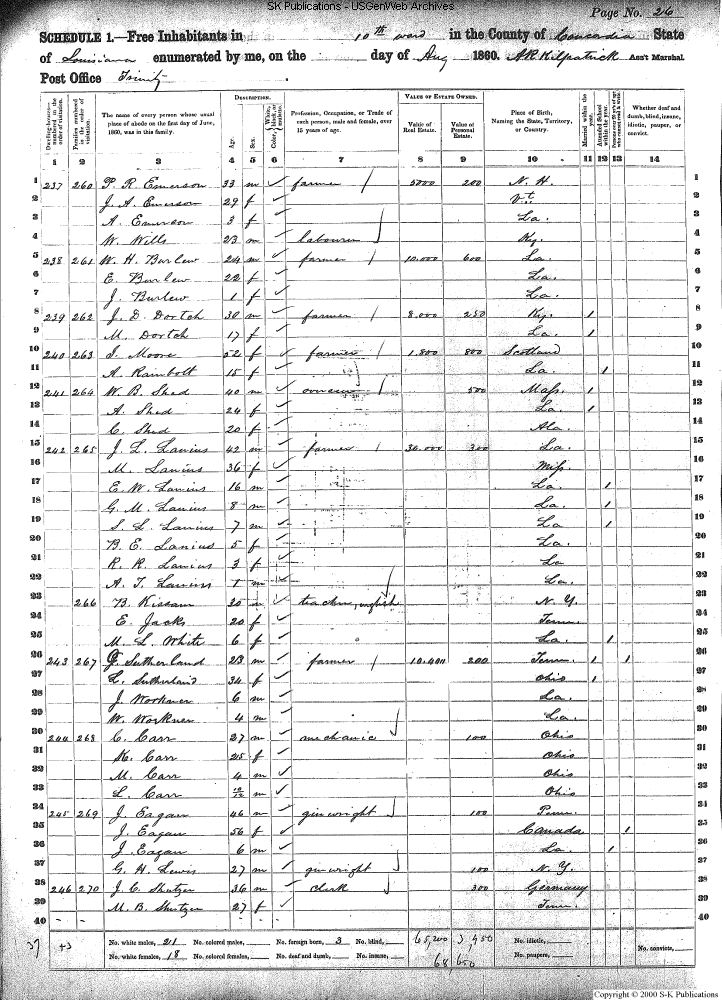 SK Publications - USGenWeb Archives
Page No. 26
SCHEDULE 1.—Free Inhabitants in 10th ward in the County of Concordia State
of Louisiana enumerated by me, on the day of Aug 1860. AR Kilpatrick Ass't Marshal
Post Office Trinity .
Dwelling-houses— numbered in the order of visitation. Families numbered in the order of visitation. The name of every person whose usual place of abode on the first day of June, 1860, was in this family. DESCRIPTION. Age. Sex. Color, White, black, or mulatto. Profession, Occupation, or Trade of each person, male and female, over 15 years of age. VALUE OF ESTATE OWNED. Value of Real Estate. Value of Personal Estate. Place of Birth, Naming the State, Territory, or Country. Married within the year. Attended School within the year. Persons over 20 y'rs of age who cannot read & write. Whether deaf and dumb, blind, insane, idiotic, pauper, or convict.
1 2 3 4 5 6 7 8 9 10 11 12 13 14
1 237 260 P. R. Emerson 33 m ✓ farmer / 5000 200 N. H. 1
2 J. A. Emerson 29 f ✓ Vt. 2
3 A. Emerson 3 f ✓ La. 3
4 W. Wills 23 m ✓ labourer Ky. 4
5 238 261 W. H. Burlew 24 m ✓ farmer / 10.000 600 La. 5
6 E. Burlew 22 f ✓ La. 6
7 J. Burlew 1 f ✓ La. 7
8 239 262 J. D. Dortch 30 m ✓ farmer / 8.000 250 Ky. 1 8
9 M. Dortch 17 f ✓ La. 1 9
10 240 263 J. Moore 52 f ✓ farmer / 1.800 800 Scotland 10
11 A. Rambolt 15 f ✓ La. 1 11
12 241 264 W. B. Shed 40 m ✓ overseer / 500 Mass. 1 12
13 A. Shed 24 f ✓ La. 1 13
14 C. Shed 20 f ✓ Ala. 14
15 242 265 J. L. Lanius 42 m ✓ farmer / 30.000 300 La. 15
16 M. Lanius 36 f ✓ Miss. 16
17 E. W. Lanius 16 m ✓ La. 1 17
18 G. M. Lanius 8 m ✓ La. 1 18
19 S. L. Lanius 7 m ✓ La 1 19
20 B. E. Lanius 5 f ✓ La. 20
21 R. R. Lanius 3 f ✓ La 21
22 A. T. Lanius 1 m ✓ La. 22
23 266 B. Kissam 30 m ✓ teacher, english N. Y. 23
24 E. Jacks 20 f ✓ Tenn. 24
25 M. L. White 6 f ✓ La. 1 25
26 243 267 Sutherland 23 m ✓ farmer / 10.400 200 Tenn. 1 1 26
27 L. Sutherland 34 f ✓ Ohio 1 27
28 J. Workner 6 m ✓ La. 28
29 W. Workner 4 m ✓ La. 29
30 244 268 C. Carr 27 m ✓ mechanic 100 Ohio 30
31 K. Carr 25 f ✓ Ohio 31
32 M. Carr 4 m ✓ Ohio 32
33 L. Carr m ✓ Ohio 33
34 245 269 J. Eagan 46 m ✓ ginwright 100 Penn. 34
35 J. Eagan 56 f ✓ Canada 1 35
36 J. Eagan 6 m ✓ La. 1 36
37 G. H. Lewis 27 m ✓ ginwright 100 N. Y. 37
38 246 270 J. C. Shutzer 36 m ✓ clerk 300 Germany 38
39 M. B. Shutzer 27 f ✓ Tenn. 39
40 - - 40
37 43 No. white males, 21 No. colored males, No. foreign born, 3 No. blind, 65,200 3,450 No. idiotic, No. convicts,
No. white females, 18 No. colored females, No. deaf and dumb, No. insane, 68,650 No. paupers,
Copyright © 2000 S-K Publications